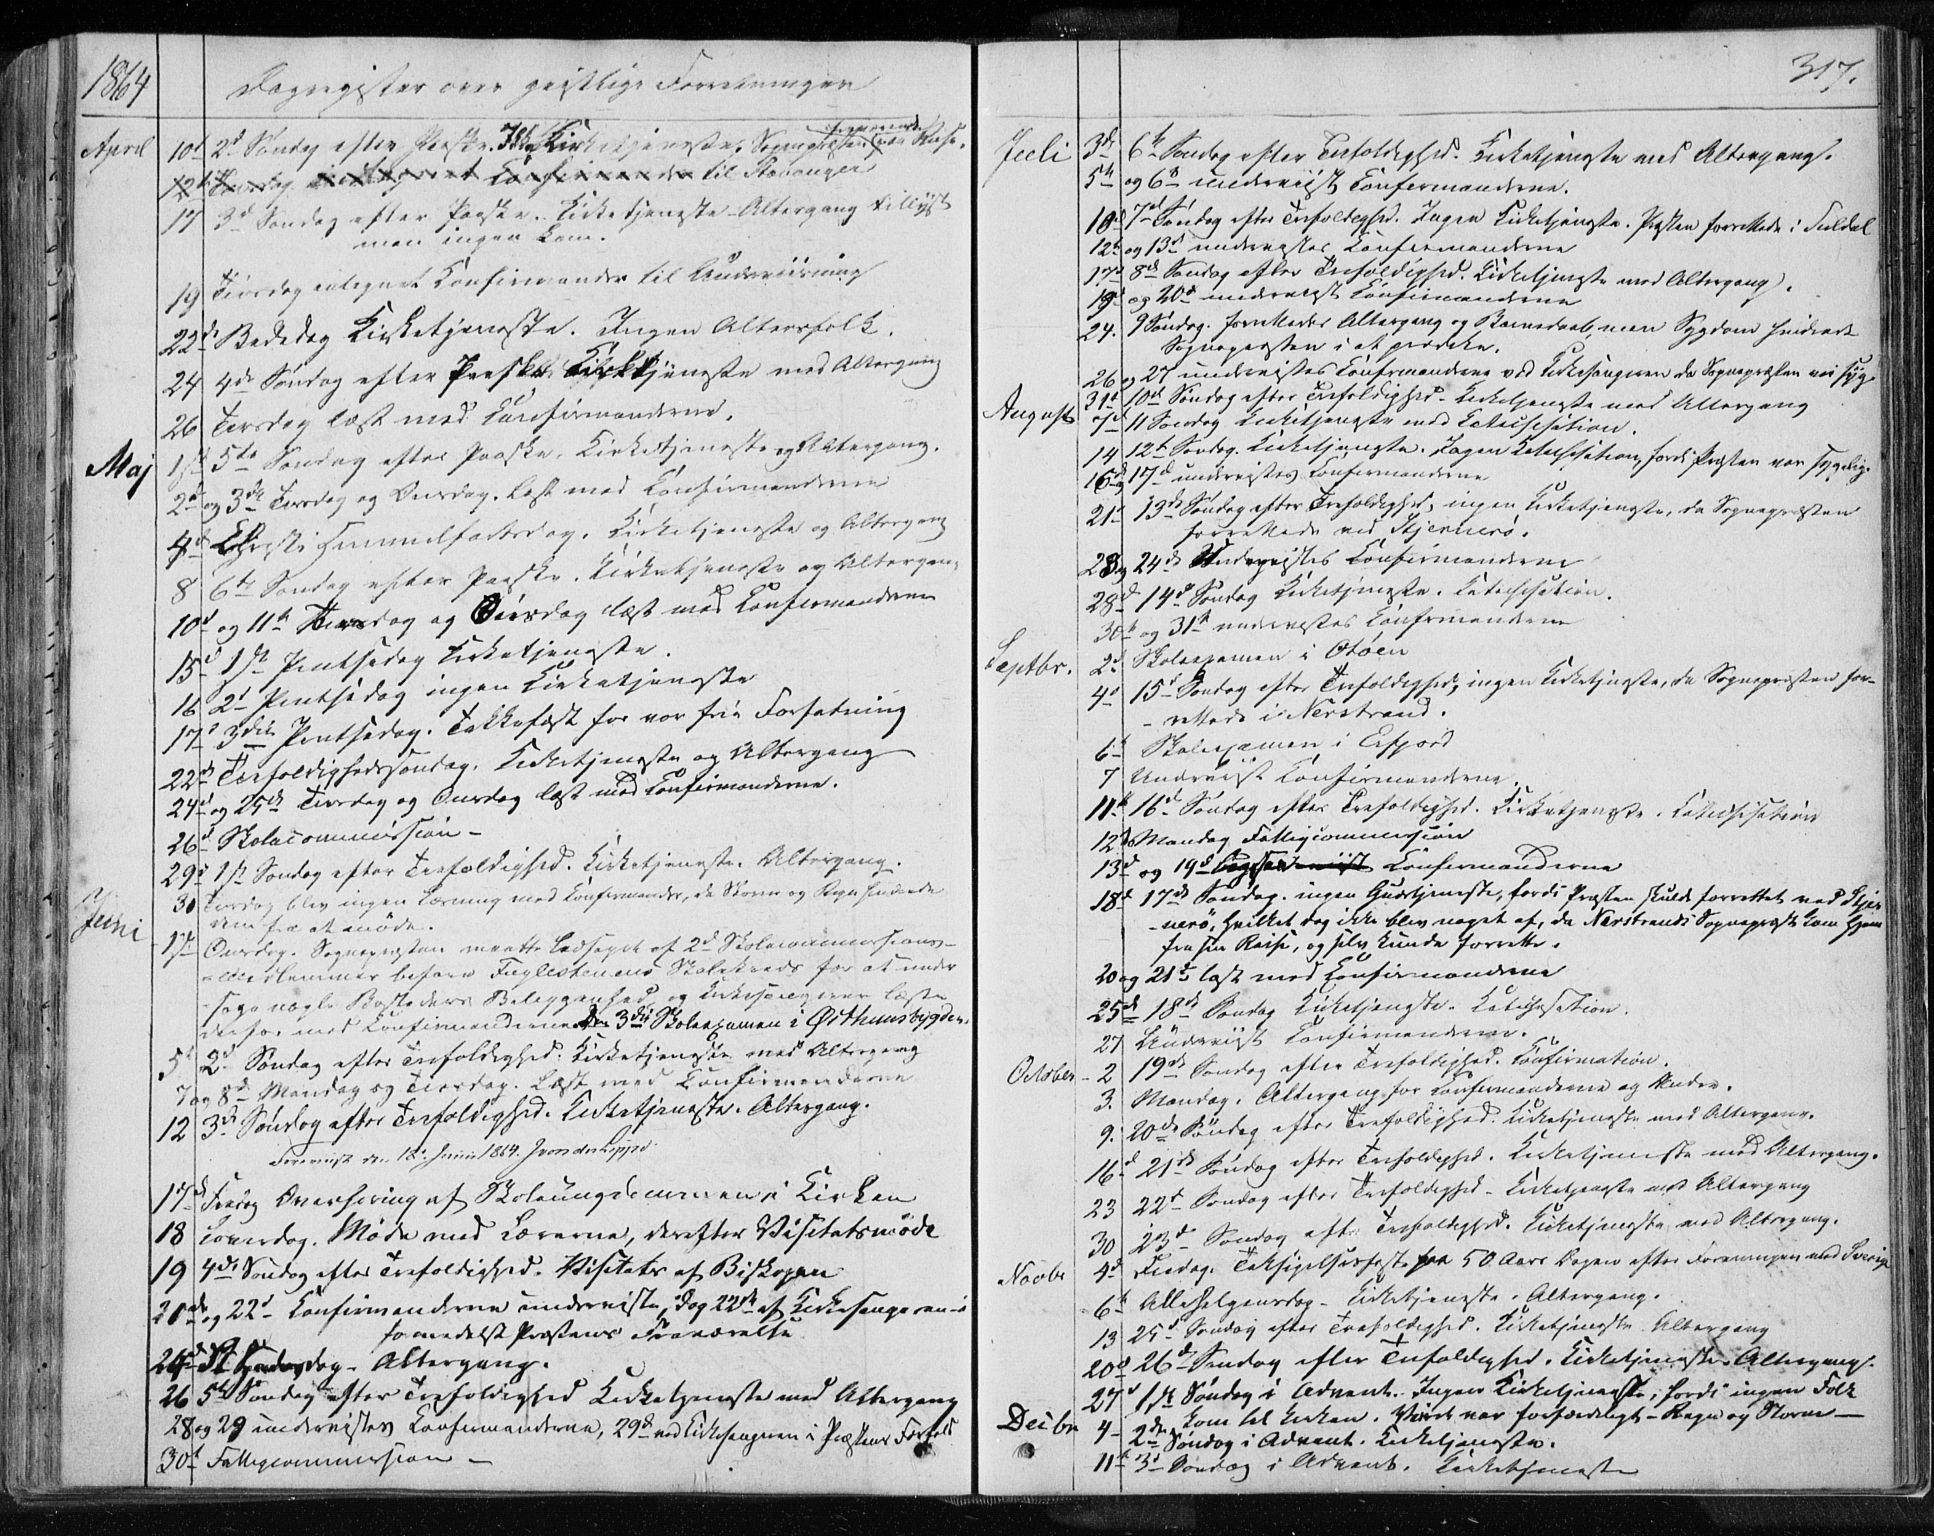 1864
Dagregister over geistlige Forretninger
April
10d 2d Søndag efter Paaske. Kirketjeneste. Sognepræsten Reise.
12te til Stavanger
17 3d Søndag efter Paaske. Kirketjeneste - Altergang tillyst
men ingen kom.
19 Tirsdag antegnet Confirmander til Underviisning
22de Bededag Kirketjeneste. Ingen Altersfolk.
24 4de Søndag efter Paaske. Kirketjeneste med Altergang
26 Tirsdag læst med Confirmanderne.
Maj
1ste 5te Søndag efter Paaske. Kirketjeneste og Altergang.
2d og 3die Tirsdag og Onsdag. læst med Confirmanderne
Christi Himmelfartsdag. Kirketjeneste og Altergang
8 6te Søndag efter Paaske. Kirketjeneste og Altergang
10d og 11te Tirsdag og Onsdag læst med Confirmanderne
15d 1ste Pintsedag Kirketjeneste.
16 2d Pintsedag ingen Kirketjeneste
17d 3die Pintsedag. Takkefest for vor frie Forfatning
22de Trefoldighedssøndag. Kirketjeneste og Altergang
24d og 25de Tirsdag og Onsdag læst med Confirmanderne.
26d Skolecommission -
29d 1ste Søndag efter Trefoldighed. Kirketjeneste. Altergang.
30 Tirsdag blev ingen Læsning med Confirmander, da Storm og Regn hindrede
dem fra at møde.
Juni
1ste Onsdag. Sognepræsten maatte ledsaget af 2d Skolecommissions-
-Medlemmer befare Fuglesteinens Skolekreds for at under
søge nogle Bosteders Beliggenhed, og Kirkesangeren læste
derfor med Confirmanderne. Den 3die Skoleexamen i Østhunsbygden.
5te 2d Søndag efter Trefoldighed. Kirketjeneste med Altergang
7 og 8d Mandag og Tirsdag. Læst med Confirmanderne
12 3de Søndag efter Trefoldighed. Kirketjeneste. Altergang.
Foreviist den 18de Juni 1864. J von der Lippe
17de Fredag Overhøring af Skoleungdommen i Kirken
18 Løverdag. Møde med Lærerne, derefter Visitatsmøde
19 4de Søndag efter Trefoldighed. Visitats af Biskopen
21de og 22d Confirmanderne underviste, dog 22de af Kirkesangeren
formedelst Præstens Fraværelse
24de St Hansdag - Altergang.
26 5te Søndag efter Trefoldighed Kirketjeneste med Altergang
28 og 29 undervistes Confirmanderne, 29de ved Kirkesangeren i Præstens Forfald
30te Fattigcommission -
317.
Juli
3die 6te Søndag efter Trefoldighed. Kirketjeneste med Altergang.
5te og 6te underviist Confirmanderne.
10d 7d Søndag efter Trefoldighed. Ingen Kirketjeneste. Præsten forrettede i Suldal
12te og 13d undervistes Confirmanderne
17d 8de Søndag efter Trefoldighed. Kirketjeneste med Altergang.
19d og 20d underviist Confirmanderne
24. 9 Søndag. forrettedes Altergang og Barnedaab, men Sygdom hindrede
Sognepræsten i at prædike.
26 og 27 undervistes Confirmanderne ved Kirkesangeren da Sognepræsten var syg
31te 10de Søndag efter Trefoldighed. Kirketjeneste med Altergang
August
7d 11 Søndag Kirketjeneste med Catechisation.
14 12te Søndag. Kirketjeneste. Ingen Catechisation, fordi Præsten var sygelig.
16d og 17d undervistes Confirmanderne
21d 13de Søndag efter Trefoldighed, ingen Kirketjeneste, da Sognepræsten
forrettede ved Stjernerø.
23 og 24de Undervistes Confirmanderne
28d 14d Søndag Kirketjeneste. Catechisation.
30te og 31te undervistes Confirmanderne
Septbr.
2d Skoleexamen i Otøen
4d 15d Søndag efter Trefoldighed, ingen Kirketjeneste, da Sognepræsten for-
- rettede i Nerstrand.
6te Skoleexamen i Erfjord
7 Underviist Confirmanderne.
11te 16d Søndag efter Trefoldighed. Kirketjeneste. Catechisation
12d Mandag Fattigcommission
13d og 14d Confirmanderne
18d 17de Søndag. ingen Gudstjeneste, fordi Præsten skulde forrettet ved Stjer
-nerø, hvilket dog ikke blev noget af, da Nerstrands Sognepræst kom hjem
fra sin Reise, og selv kunde forrette.
20 og 21d læst med Confirmanderne
25de 18de Søndag Kirketjeneste. Catechisation.
27 Underviist Confirmanderne.
October
2 19de Søndag efter Trefoldighed. Confirmation.
3. Mandag. Altergang for Confirmanderne og Andre.
9. 20de Søndag efter Trefoldighed. Kirketjeneste med Altergang.
16d 21de Søndag efter Trefoldighed. Kirketjeneste med Altergang.
23 22d Søndag efter Trefoldighed - Kirketjeneste med Altergang
30 23d Søndag efter Trefoldighed. Kirketjeneste med Altergang.
Novbr
4d Fredag. Taksigelsesfest paa 50 Aars Dagen efter Foreningen med Sverige
6te Allehelgensdag - Kirketjeneste. Altergang.
13 25d Søndag efter Trefoldighed. Kirketjeneste Altergang
20d 26de Søndag efter Trefoldighed. Kirketjeneste. Altergang.
27d 1ste Søndag i Advent. Ingen Kirketjeneste, fordi ingen Folk
kom til Kirken. Veiret var forfærdeligt - Regn og Storm -
Decbr
4 2den Søndag i Advent. Kirketjeneste.
11te 3d Søndag i Advent. Kirketjeneste